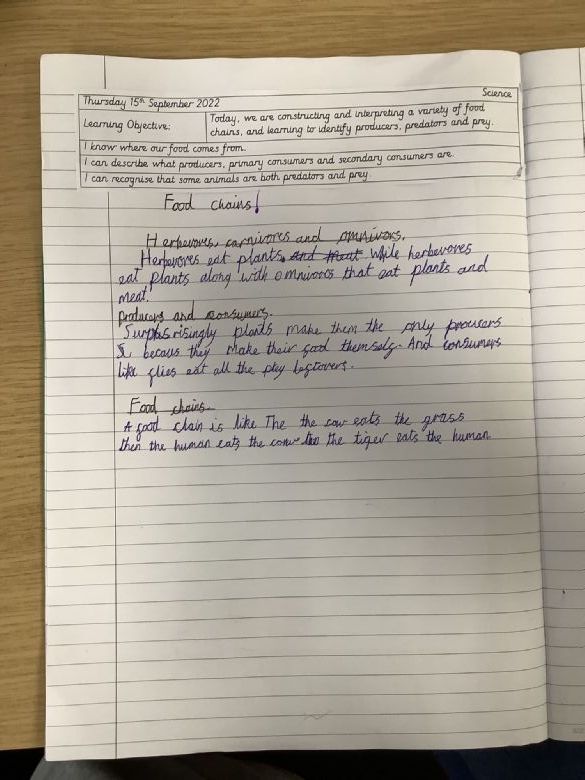 Science
Thursday 15th September 2022
Learning Objective:
Today, we are constructing and interpreting a variety of food
chains, and learning to identify producers, predators and prey.
I know where our food comes from.
I can describe what producers, primary consumers and secondary consumers are.
I can recognise that some animals are both predators and prey.
Food chains!
Herbevores, carnivores and omnivors.
Herbevores eat plants. and meat. While herbevores
eat plants along with omnivores that eat plants and
meat.
producers and consumers.
Surprisingly plants make them the only proucers
becaus they make their food themselg. And consumers
like flies eat all the leftovers.
Food chains.
A food chain is like The the cow eats the grass
then the human eats the the tiger eats the human